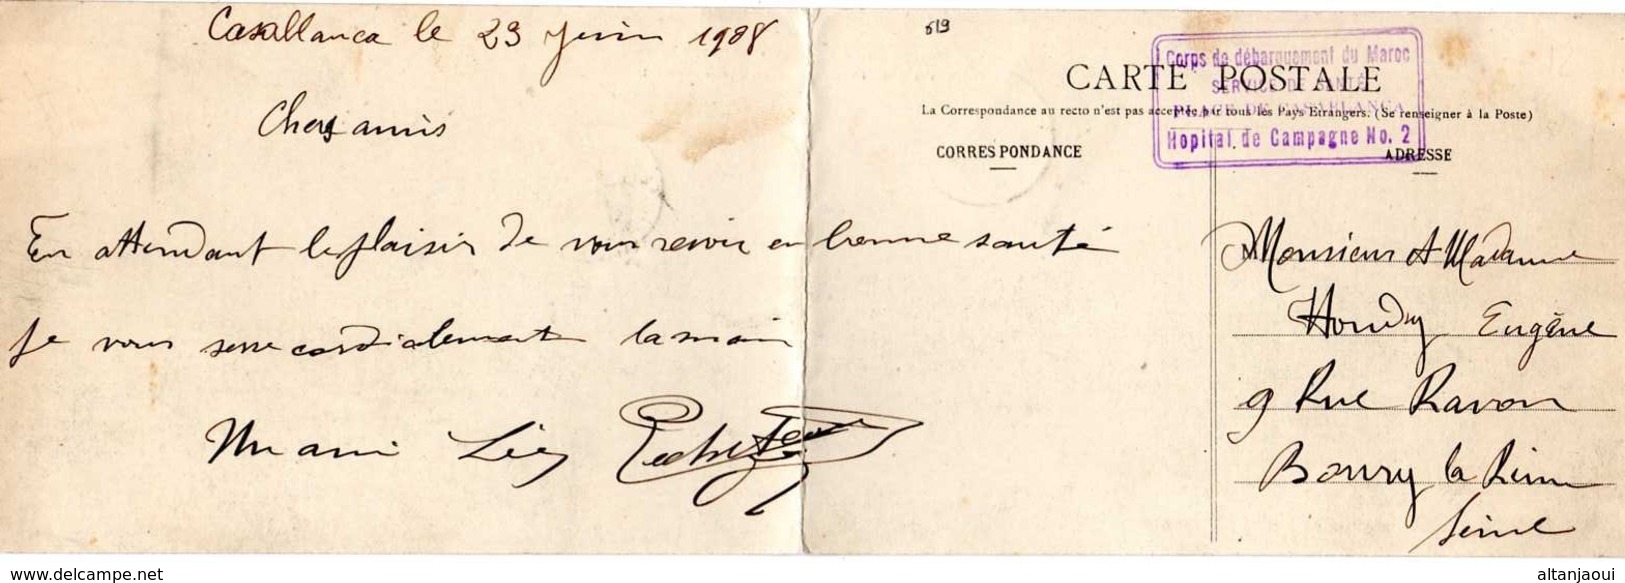 Casablanca le 23 Juin 1908
619
Corps de débarquement du Maroc
SERVICE DE SANTÉ
PLACE DE CASABLANCA
Hopital de Campagne No. 2
CARTE POSTALE
La Correspondance au recto n'est pas acceptée par tous les Pays Etrangers. (Se renseigner à la Poste)
CORRESPONDANCE
ADRESSE
Chers amis
En attendant le plaisir de vous revoir en bonne santé
Je vous serre cordialement la main
Un ami
Monsieur et Madame
Houdy Eugène
9 Rue Ravon
Bourg la Reine
Seine
delcampe.net
altanjaoui